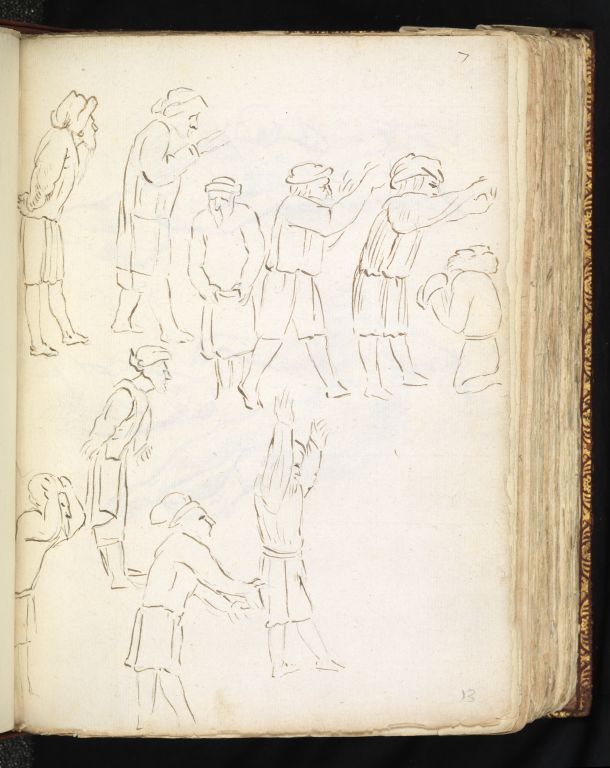 7
13